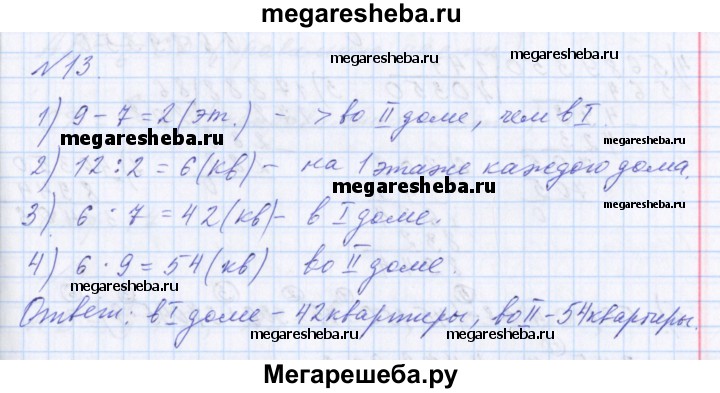 megaresheba.ru
megaresheba.ru
N 13.
1) 9 - 7 = 2 (эт.) - > во II доме, чем в I.
megaresheba.ru
2) 12 : 2 = 6 (кв) - на 1 этаже каждого дома.
megaresheba.ru
3) 6 · 7 = 42 (кв) - в I доме.
4) 6 · 9 = 54 (кв) во II доме.
megaresheba.ru
Ответ: в I доме - 42 квартиры, во II - 54 квартиры.
megaresheba.ru
megaresheba.ru
Мегарешеба.ру